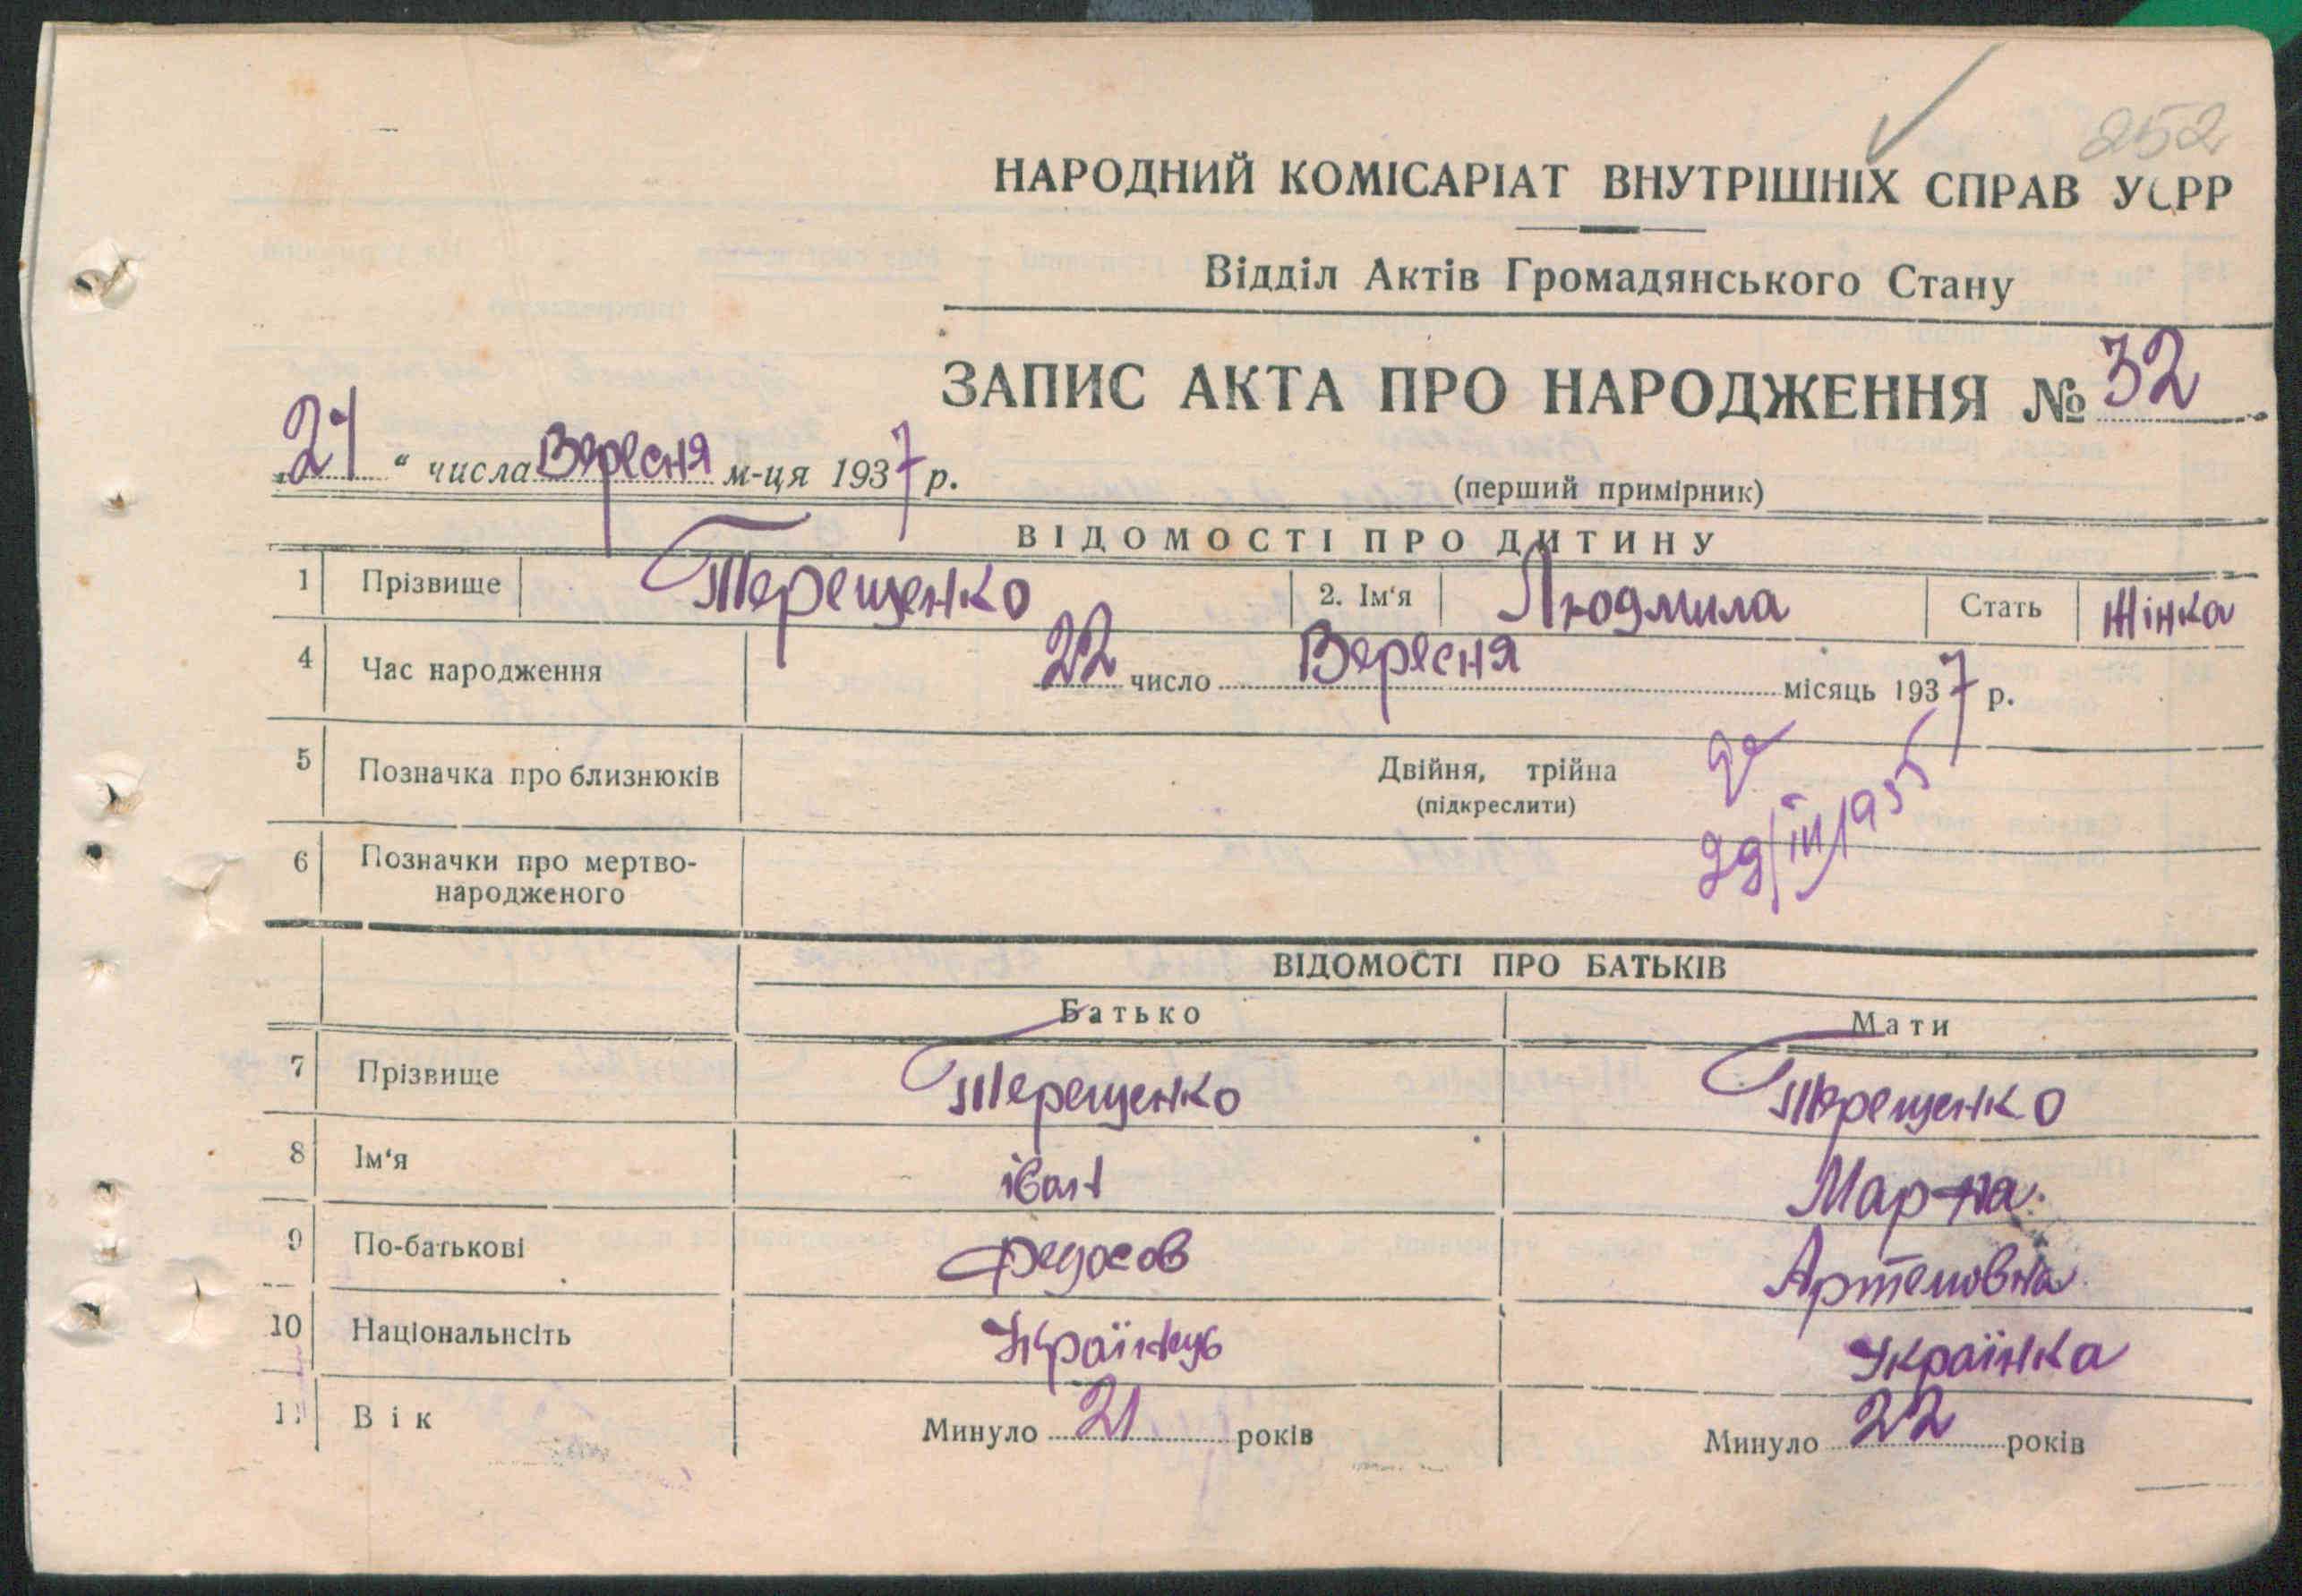 252
НАРОДНИЙ КОМІСАРІАТ ВНУТРІШНІХ СПРАВ УСРР
Відділ Актів Громадянського Стану
ЗАПИС АКТА ПРО НАРОДЖЕННЯ № 32
„ “ числа Вересня м-ця 1937 р.
(перший примірник)
ВІДОМОСТІ ПРО ДИТИНУ
1 Прізвище Терещенко 2. Ім‘я Людмила Стать Жінка
4 Час народження 22 число Вересня місяць 1937 р.
5 Позначка про близнюків Двійня, трійна
(підкреслити)
6 Позначки про мертво-
народженого
ВІДОМОСТІ ПРО БАТЬКІВ
Батько Мати
7 Прізвище Терещенко Терещенко
8 Ім‘я іван
9 По-батькові Федосов Артемовна
10 Національнсіть Українець Українка
11 Вік Минуло 21 років Минуло 22 років